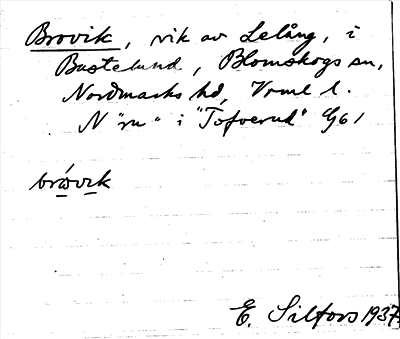 Brovik, vik av Lelång, i
Bastelund, Blomskogs sn,
Nordmarks hd, Vrml l.
N "ru" i "Tofverud" G61
bròvik
E. Silfors 1937